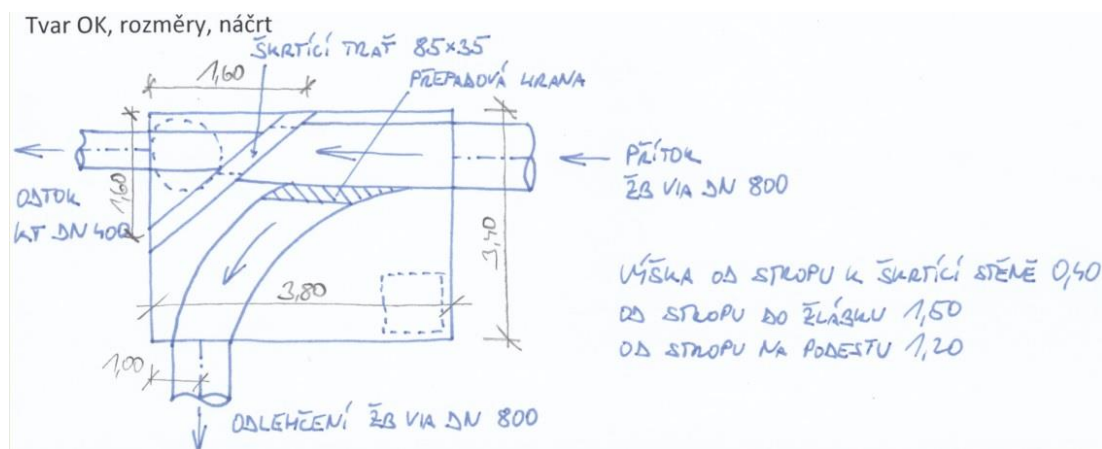 Tvar OK, rozměry, náčrt
ŠKRTÍCÍ TRAŤ 85×35
1,60
PŘEPADOVÁ HRANA
ODTOK
KT DN 400
1,60
PŘÍTOK
ŽB VIA DN 800
3,40
3,80
VÝŠKA OD STROPU K ŠKRTÍCÍ STĚNĚ 0,40
OD STROPU DO ŽLÁBKU 1,50
OD STROPU NA PODESTU 1,20
1,00
ODLEHČENÍ ŽB VIA DN 800